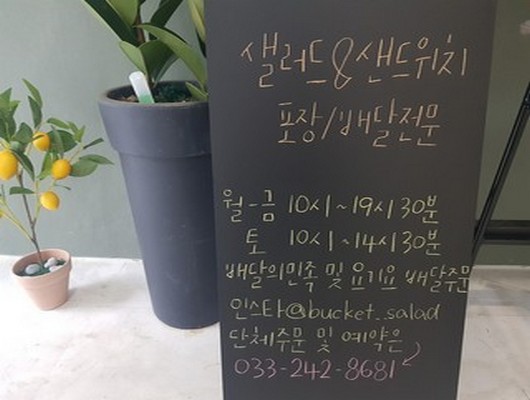 샐러드&샌드위치
포장/배달전문
월-금 10시~19시30분
토 10시~14시30분
배달의민족 및 요기요 배달주문
인스타@bucket_salad
단체주문 및 예약은
033-242-8681